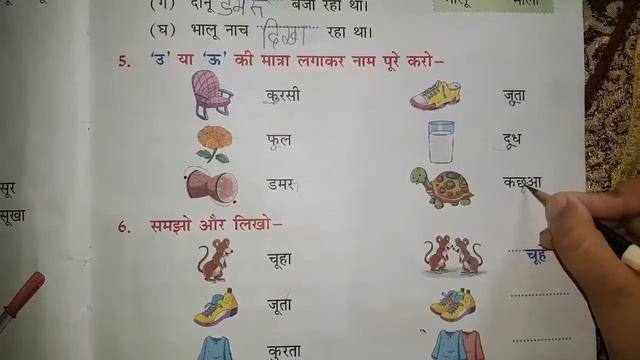 (ग) दानू डमरू बजा रहा था।
(घ) भालू नाच दिखा रहा था।
5. 'उ' या 'ऊ' की मात्रा लगाकर नाम पूरे करो–
कुरसी जूता
फुल दूध
डमरु कछुआ
6. समझो और लिखो–
सूर
सूखा
चूहा चूहे
जूता
कुरता